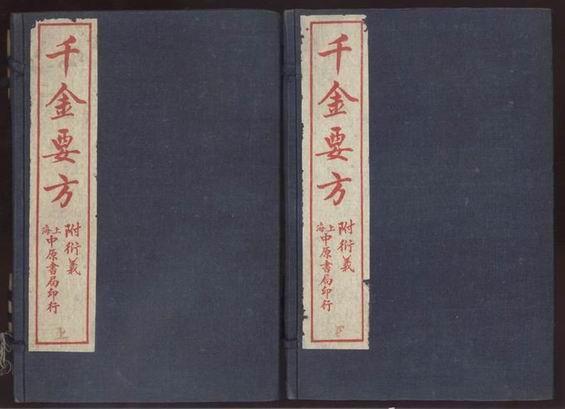 千金要方
附衍義
上海中原書局印行
上
千金要方
附衍義
上海中原書局印行
下